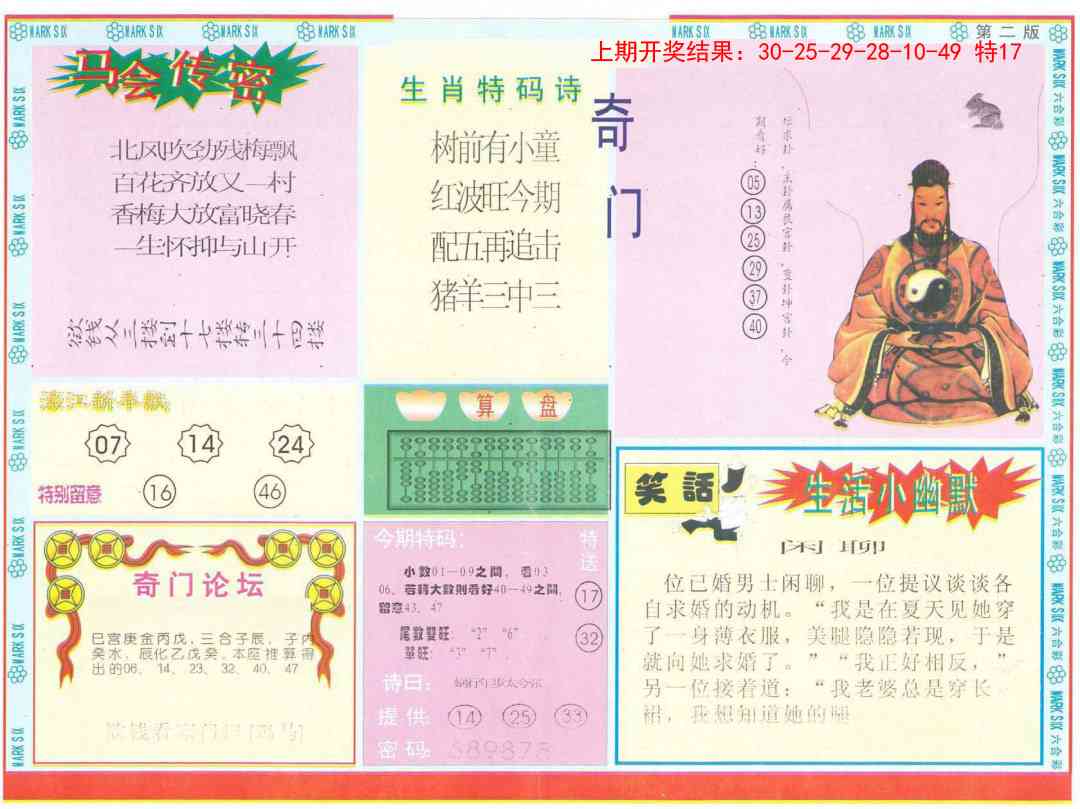 MARK SIX
MARK SIX
MARK SIX
MARK SIX
MARK SIX
MARK SIX
MARK SIX
第二版
上期开奖结果：30-25-29-28-10-49 特17
马会传密
北风吹劲残梅飘
百花齐放又一村
香梅大放富晓春
一生怀抑与山开
欲钱从三楼到十七楼转三十四楼
生肖特码诗
树前有小童
红波旺今期
配五再追击
猪羊三中三
奇门
05
13
25
29
37
40
濠江新春版
07 14 24
特别留意 16 46
算盘
奇门论坛
巳宫庚金丙戊，三合子辰，子内
癸水，辰化乙戊癸。本座推算得
出的06、14、23、32、40、47
今期特码：
小数01-09之間，看03
06、若轉大數則看好40-49之間，
留意43、47
尾数雙旺："2" "6"
單旺：
诗曰：
提供：14 25 33
密码：689878
特送
17
32
笑話
生活小幽默
闲聊
位已婚男士闲聊，一位提议谈谈各
自求婚的动机。“我是在夏天见她穿
了一身薄衣服，美腿隐隐若现，于是
就向她求婚了。”“我正好相反，”
另一位接着道：“我老婆总是穿长
裙，我想知道她的腿
MARK SIX 六合彩
MARK SIX 六合彩
MARK SIX 六合彩
MARK SIX 六合彩
MARK SIX 六合彩
MARK SIX 六合彩
MARK SIX 六合彩